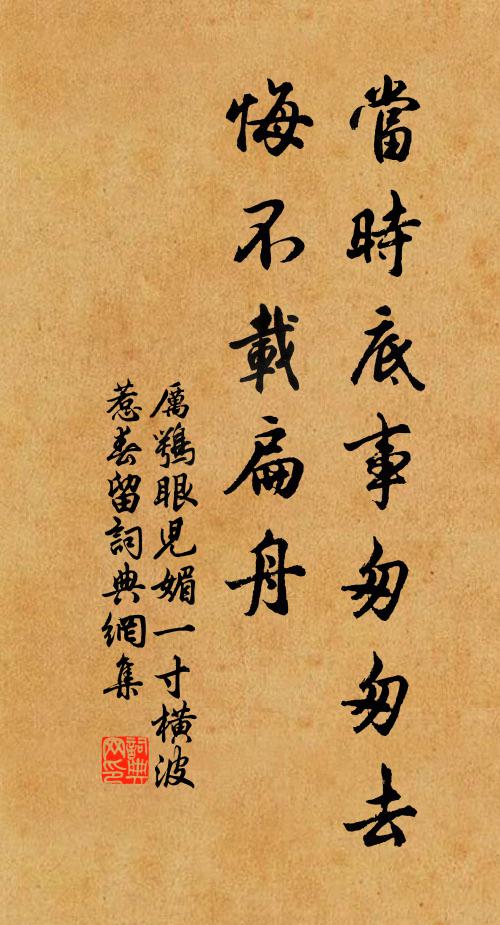 當時底事匆匆去
悔不載扁舟
厲鶚眼児媚一寸橫波
惹春留詞典網集
詞典
网印